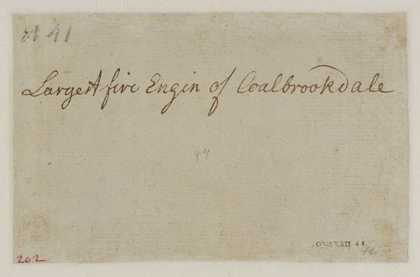 41
Largest fire Engin of Coalbrookdale
202